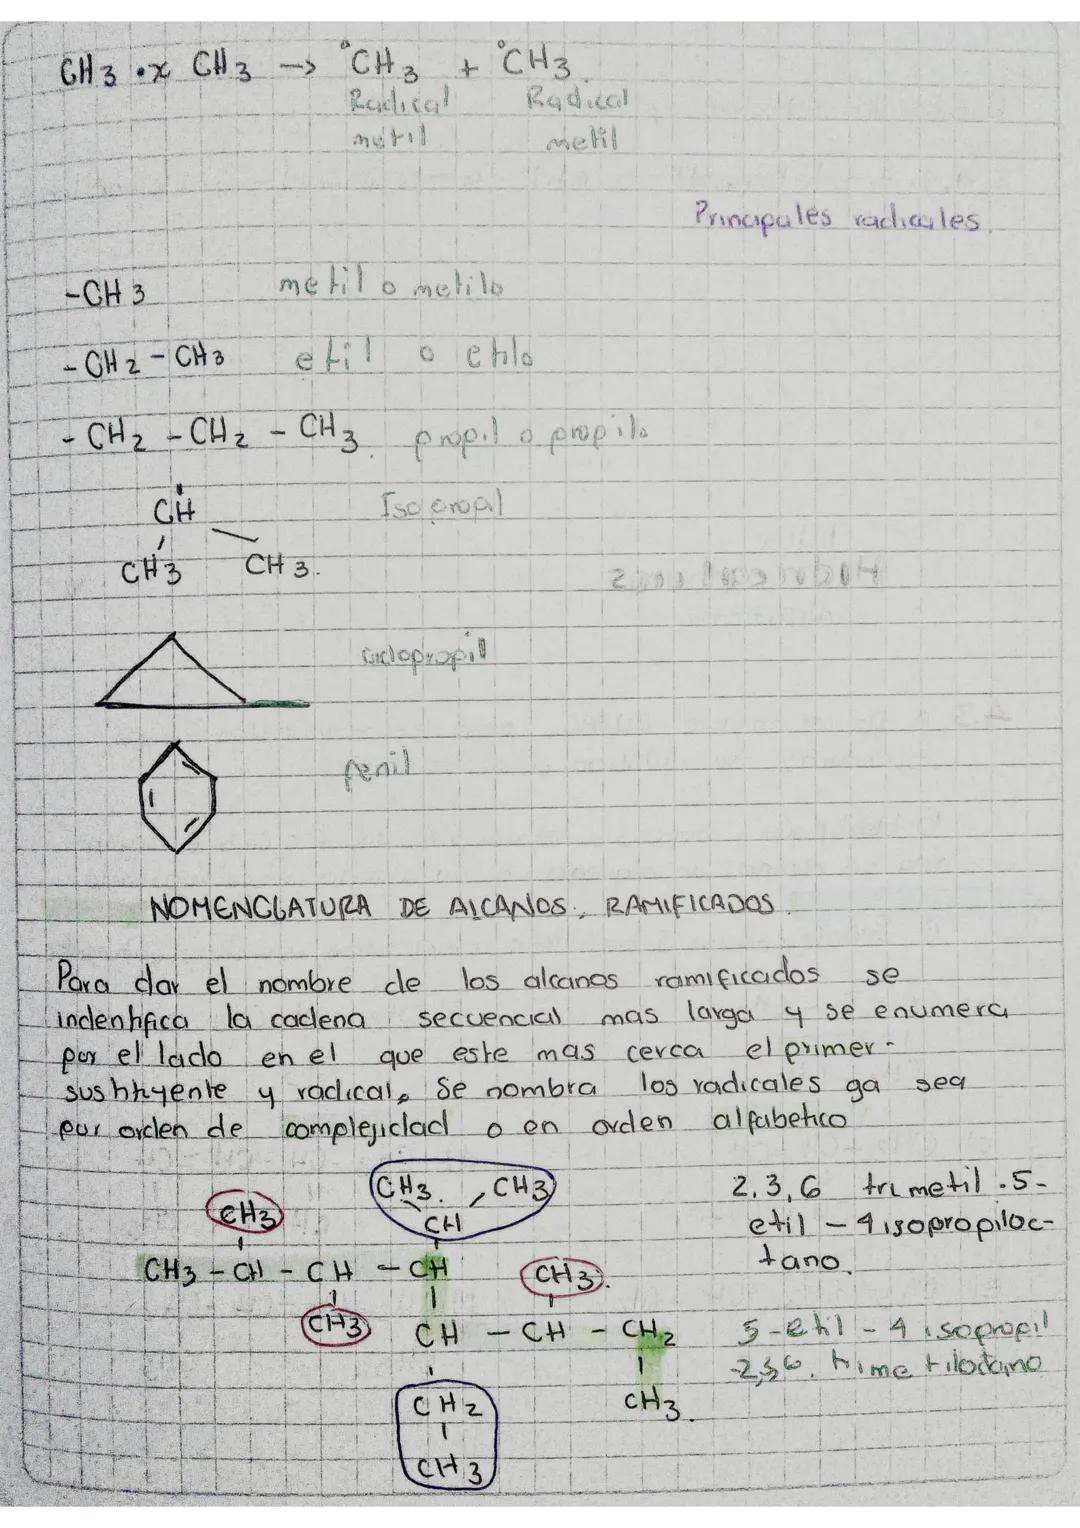 CH3 •x CH3 -> °CH3 + °CH3.
Radical Radical
metil metil
Principales radicales.
-CH3 metil o metilo
- CH2 - CH3 etil o etilo
- CH2 - CH2 - CH3. propil o propilo
CH Isopropil
CH3 CH3.
ciclopropil
fenil
NOMENCLATURA DE AlCANOS. RAMIFICADOS.
Para dar el nombre de los alcanos ramificados se
indentifica la cadena secuencial mas larga y se enumera
por el lado en el que este mas cerca el primer-
sustityente y radical. Se nombra los radicales ya sea
por orden de complejidad o en orden alfabetico
CH3. CH3 2,3,6 trimetil -5-
CH3 CH etil - 4 isopropiloc-
CH3 - CH - CH - CH CH3. tano.
CH3 CH - CH - CH2 5-etil - 4 isopropil
-2,3,6. trimetiloctano
CH2 CH3.
CH3